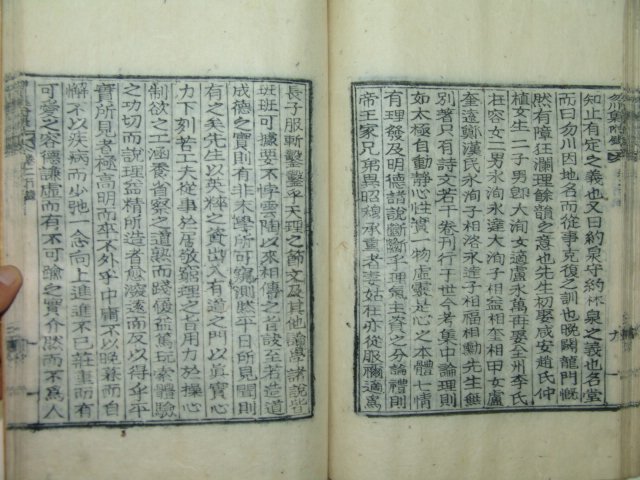 知止有定之義也又曰約泉守約林泉之義也名堂
而曰勿川因地名而從事克復之訓也晩闢龍門慨
然有障狂瀾理餘韻之意也先生初娶咸安趙氏仲
植女生二子男卽大洵女適盧永萬再娶全州李氏
相容女二男永洵永達大洵子相益相奎相田女盧
奎遠鄭漢民永洵子相洛永達子相福相勳先生無
別著只有詩文若干卷刊行于世今考集中論理則
如太極自動靜心性實一物虛靈是心之本體七情
有理發及明德諸說斷斷乎理氣主資之分論禮則
帝王家兄弟異昭穆承重者妻姑在亦從服禰適爲
長子服斬鑿鑿乎天理之節文及其他論學諸說皆
班班可據要不悖雲陶以來相傳之旨訣至若造道
成德之實則有非末學所可窺測然平日所見聞則
有之矣先生以英粹之資出入有道之門以眞實心
力下刻苦工夫從事於居敬窮理之旨用力於操心
制欲之工涵養省察之道熟而踐履益篤玩索體驗
之功切而說理益精所造者愈深遠而反以得乎平
實所見者極高明而卒不外乎中庸不以晩暮而自
懈不以疾病而少弛一念向上進進不已莊重而有
可愛之容德謙虛而有不可諭之實介然而不爲人